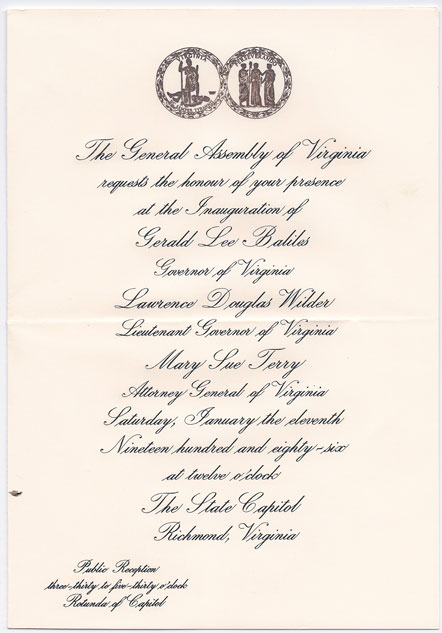 VIRGINIA
PERSEVERANDO
The General Assembly of Virginia
requests the honour of your presence
at the Inauguration of
Gerald Lee Baliles
Governor of Virginia
Lawrence Douglas Wilder
Lieutenant Governor of Virginia
Mary Sue Terry
Attorney General of Virginia
Saturday, January the eleventh
Nineteen hundred and eighty-six
at twelve o'clock
The State Capitol
Richmond, Virginia
Public Reception
three-thirty to five-thirty o'clock
Rotunda of Capitol